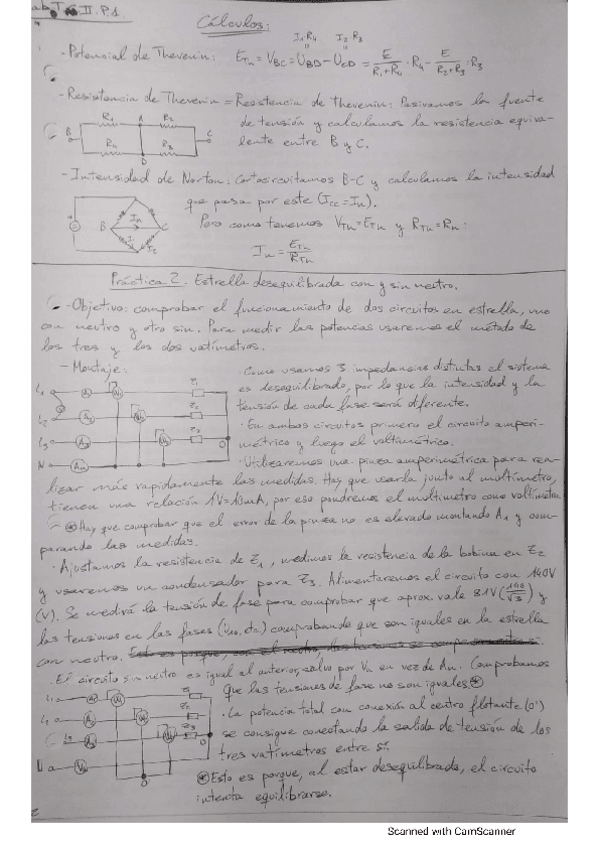 Cálculos:
I₁·R₄ I₂·R₃
- Potencial de Thevenin: E_Th = V_BC = U_BD - U_CD = E/(R₁+R₄) · R₄ - E/(R₂+R₃) · R₃
- Resistencia de Thevenin = Resistencia de Thevenin: Pasivamos la fuente
de tensión y calculamos la resistencia equiva-
lente entre B y C.
R₁ A R₂
B C
R₄ R₃
D
- Intensidad de Norton: Cortocircuitamos B-C y calculamos la intensidad
que pasa por este (Icc = In).
Pero como tenemos V_Th = E_Th y R_Th = Rn:
In = E_Th/R_Th
B In C
Práctica 2. Estrella desequilibrada con y sin neutro.
- Objetivo: comprobar el funcionamiento de dos circuitos en estrella, uno
con neutro y otro sin. Para medir las potencias usaremos el método de
los tres y los dos vatímetros.
- Montaje:
L₁ A₁ W₁ Z₁
L₂ A₂ W₂ Z₂
L₃ A₃ W₃ Z₃
N An O
· Como usamos 3 impedancias distintas el sistema
es desequilibrado, por lo que la intensidad y la
tensión de cada fase será diferente.
· En ambos circuitos primero el circuito amperi-
métrico y luego el voltimétrico.
· Utilizaremos una pinza amperimétrica para rea-
lizar más rapidamente las medidas. Hay que usarla junto al multímetro,
tienen una relación por eso pondremos el multímetro como voltímetro
⊛ Hay que comprobar que el error de la pinza no es elevado montando A₁ y com-
parando las medidas.
· Ajustamos la resistencia de Z₁, medimos la resistencia de la bobina en Z₂
y usaremos un condensador para Z₃. Alimentaremos el circuito con 140V
(V). Se medirá la tensión de fase para comprobar que aprox. vale 81V (140/√3) y
las tensiones en las fases comprobando que son iguales en la estrella
con neutro.
· El circuito sin neutro es igual al anterior, salvo por Vn en vez de An. Comprobamos
que las tensiones de fase no son iguales ⊛
L₁ A₁ W₁ Z₁
L₂ A₂ W₂ Z₂
L₃ A₃ W₃ Z₃
N Vn O
O'
· La potencia total con conexión al centro flotante (O')
se consigue conectando la salida de tensión de los
tres vatímetros entre sí.
⊛ Esto es porque, al estar desequilibrada, el circuito
intenta equilibrarse.
Scanned with CamScanner